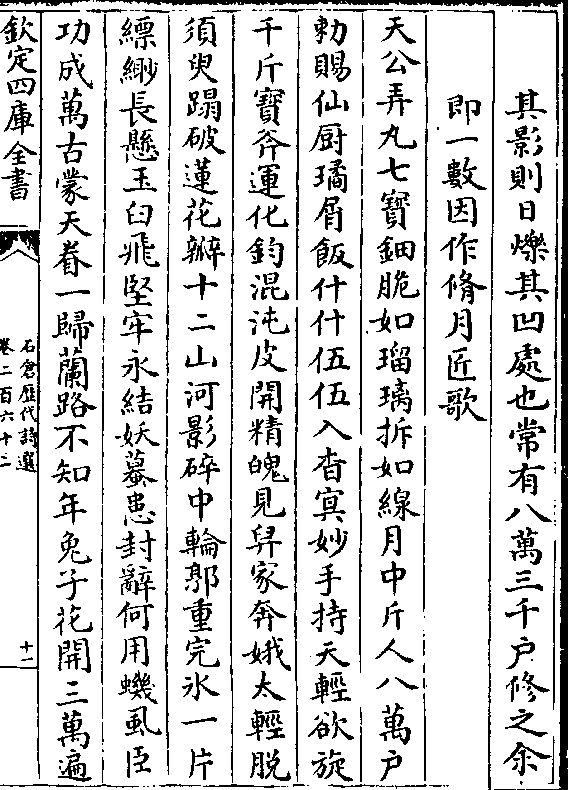 其影則日爍其凹處也常有八萬三千户修之余
即一數因作脩月匠歌
天公弄丸七寶鈿脆如瑠璃拆如線月中斤人八萬户
勅賜仙厨璚屑飯什什伍伍入杳㝠妙手持天輕欲旋
千斤寶斧運化鈞混沌皮開精魄見羿家奔娥太輕脱
須臾蹋破蓮花瓣十二山河影碎中輪郭重完氷一片
縹緲長懸玉臼飛堅牢永結妖蟇患封辭何用蟣虱臣
功成萬古蒙天眷一歸蘭路不知年兔子花開三萬遍
欽定四庫全書
石倉歴代詩選
卷二百六十二
十一